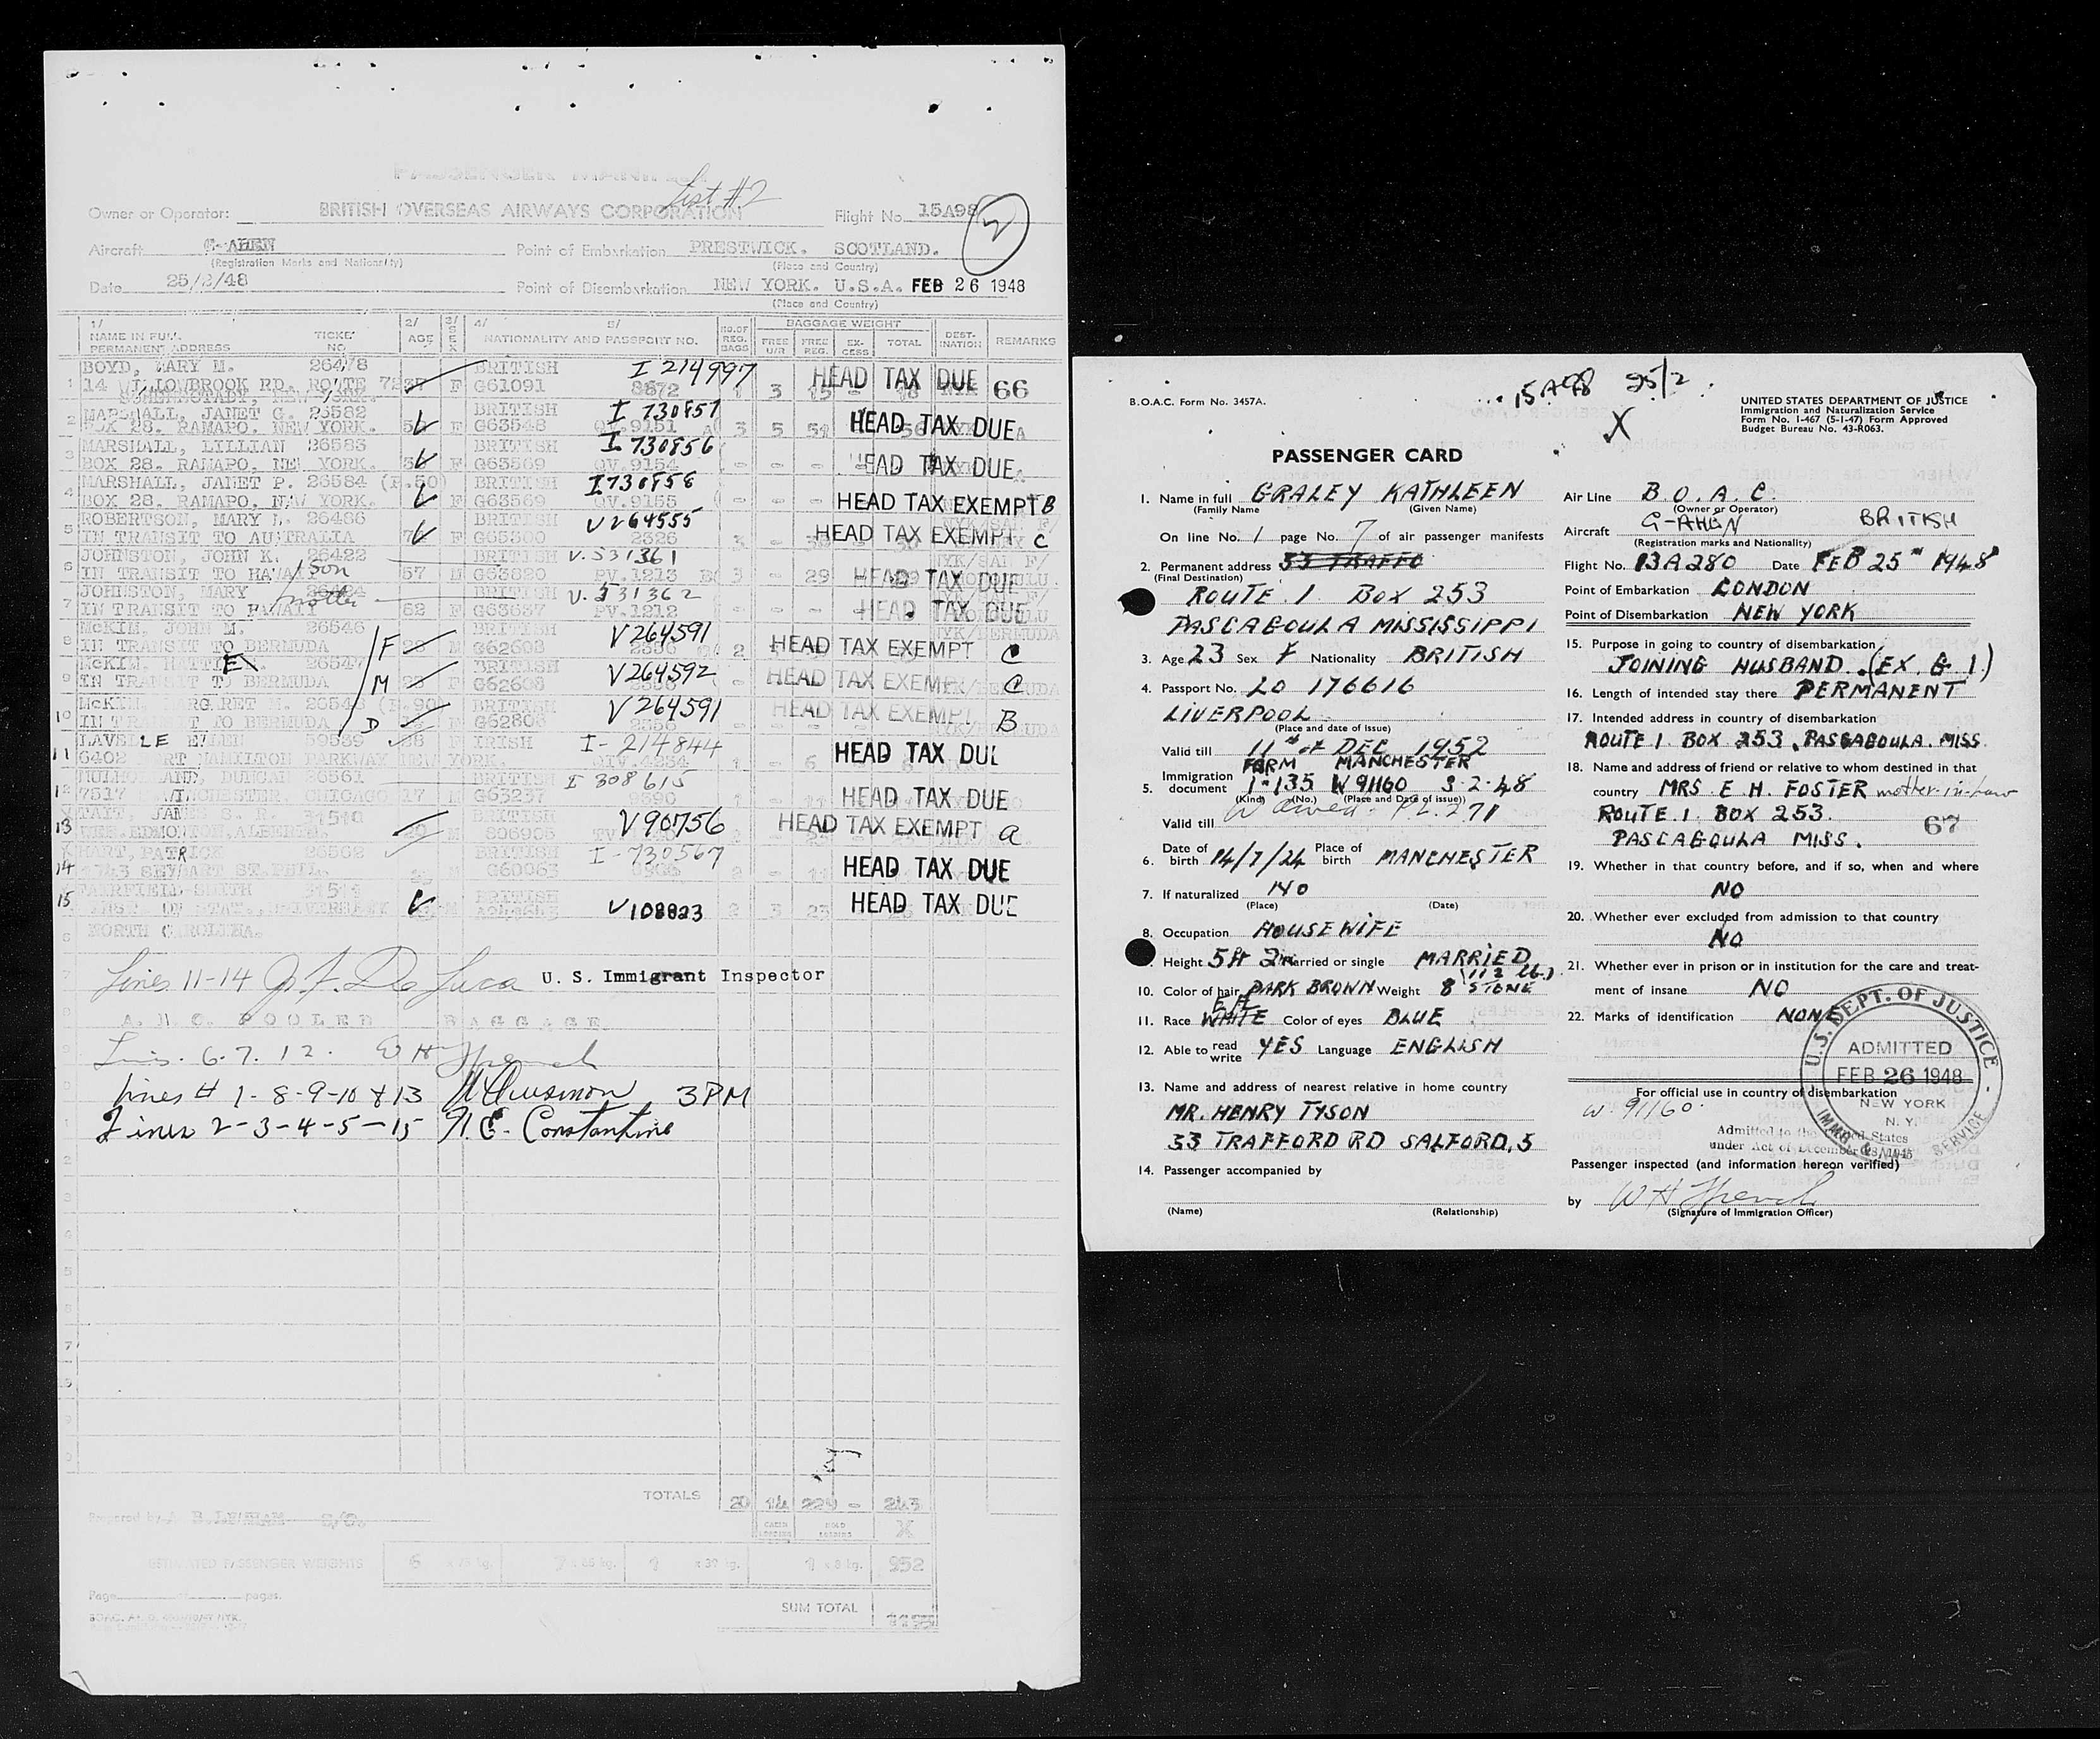 PASSENGER MANIFEST
List #2
Owner or Operator: BRITISH OVERSEAS AIRWAYS CORPORATION Flight No. 15A98
2
Aircraft G-AHEN Point of Embarkation PRESTWICK. SCOTLAND.
(Registration Marks and Nationality) (Place and Country)
Date 25/2/48 Point of Disembarkation NEW YORK. U.S.A. FEB 26 1948
(Place and Country)
1/ NAME IN FULL PERMANENT ADDRESS TICKET NO. 2/ AGE 3/ SEX 4/ NATIONALITY AND PASSPORT NO. 5/ NO. OF REG. BAGS BAGGAGE WEIGHT FREE U/R FREE REG. EXCESS TOTAL DESTINATION REMARKS
BOYD, MARY M. 26478 BRITISH I 214997
1 14 WILLOWBROOK RD. ROUTE 7 F G61091 8672 1 3 15 - 18 HEAD TAX DUE 66
SCHENECTADY, NEW YORK.
2 MARSHALL, JANET G. 26582 BRITISH I 730857
BOX 28. RAMAPO, NEW YORK. F G63548 QV.9151 3 5 51 56 HEAD TAX DUE
3 MARSHALL, LILLIAN 26583 BRITISH I 730856
BOX 28. RAMAPO, NEW YORK. F G63569 QV.9154 - - - HEAD TAX DUE
4 MARSHALL, JANET P. 26584 BRITISH I730858
BOX 28. RAMAPO, NEW YORK. F G63569 QV.9155 - - - HEAD TAX EXEMPT B
5 ROBERTSON, MARY L. 26466 BRITISH V264555
IN TRANSIT TO AUSTRALIA F G65300 2326 3 - HEAD TAX EXEMPT C
6 JOHNSTON, JOHN K. 26422 BRITISH V.531361 NYK/SAN F/
IN TRANSIT TO HAWAII Son 57 M G63880 PV.1213 3 - 29 HEAD TAX DUE
7 JOHNSTON, MARY mother BRITISH V.531362
IN TRANSIT TO HAWAII 82 F G63637 PV.1212 - - - HEAD TAX DUE
8 McKIM, JOHN M. 26546 BRITISH V264591 NYK/BERMUDA
IN TRANSIT TO BERMUDA F G62608 2356 2 HEAD TAX EXEMPT C
9 McKIM, HATTIE 26547 BRITISH V264592
IN TRANSIT TO BERMUDA M F G62608 HEAD TAX EXEMPT C
10 McKIM, MARGARET M. 26548 BRITISH V264591
IN TRANSIT TO BERMUDA D F G62808 HEAD TAX EXEMPT B
11 LAVELLE ELLEN 59589 F IRISH I-214844
6402 FORT HAMILTON PARKWAY NEW YORK. 4234 1 - 6 HEAD TAX DUE
12 MULHOLLAND, DUNCAN 26561 BRITISH I 308615
7517 WINCHESTER, CHICAGO 17 M G63237 9390 HEAD TAX DUE
13 TAIT, JAMES S. R. V90756
EDMONTON, ALBERTA M HEAD TAX EXEMPT a
14 HART, PATRICK 26562 BRITISH I-730567
G60063 HEAD TAX DUE
15 FAIRFIELD SMITH BRITISH
INST OF STAT., UNIVERSITY M V108823 2 3 23 HEAD TAX DUE
NORTH CAROLINA.
Lines 11-14 J. F. De Luca U. S. Immigrant Inspector
POOLED BAGGAGE
Lines. 6.7. 12. W H French
Lines # 1-8-9-10 & 13 3 PM
Lines 2-3-4-5-15 N. E. Constantine
TOTALS 20 14 229 - 243
Prepared by
CABIN LOADING HOLD LOADING X
ESTIMATED PASSENGER WEIGHTS 6 x 75 kg. 7 x 65 kg. 1 x 37 kg. 1 x 8 kg. 952
Page pages.
SUM TOTAL
B.O.A.C. Form No. 3457A.
15A98 25/2.
X
UNITED STATES DEPARTMENT OF JUSTICE
Immigration and Naturalization Service
Form No. I-467 (5-1-47) Form Approved
Budget Bureau No. 43-R063.
PASSENGER CARD
1. Name in full GRALEY KATHLEEN
(Family Name (Given Name)
On line No. 1 page No. 7 of air passenger manifests
2. Permanent address 33 TRAFFO
(Final Destination)
ROUTE. 1. BOX 253
PASCAGOULA MISSISSIPPI
3. Age 23 Sex F Nationality BRITISH
4. Passport No. LO 176616
LIVERPOOL
(Place and date of issue)
Valid till 11th of DEC 1952
FORM MANCHESTER
5. Immigration document I-135 W 91160 3-2-48
(Kind) (No.) (Place and Date of issue))
Valid till Waived. P.L. 271
6. Date of birth 14/7/24 Place of birth MANCHESTER
7. If naturalized NO
(Place) (Date)
8. Occupation HOUSEWIFE
Height 5ft 2in Married or single MARRIED
(112 lb.)
10. Color of hair DARK BROWN Weight 8 STONE
11. Race WHITE Color of eyes BLUE
12. Able to read write YES Language ENGLISH
13. Name and address of nearest relative in home country
MR. HENRY TYSON
33 TRAFFORD RD SALFORD, 5
14. Passenger accompanied by
(Name) (Relationship)
Air Line B.O.A.C.
(Owner or Operator)
Aircraft G-AHEN BRITISH
(Registration marks and Nationality)
Flight No. 13A280 Date FEB 25th 1948
Point of Embarkation LONDON
Point of Disembarkation NEW YORK
15. Purpose in going to country of disembarkation
JOINING HUSBAND. (EX. G.I.)
16. Length of intended stay there PERMANENT
17. Intended address in country of disembarkation
ROUTE 1. BOX 253. PASCAGOULA. MISS
18. Name and address of friend or relative to whom destined in that
country MRS. E. H. FOSTER mother-in-law
ROUTE. 1. BOX 253.
67
PASCAGOULA MISS.
19. Whether in that country before, and if so, when and where
NO
20. Whether ever excluded from admission to that country
NO
21. Whether ever in prison or in institution for the care and treatment of insane NO
22. Marks of identification NONE
U.S. DEPT. OF JUSTICE
ADMITTED
FEB 26 1948
NEW YORK
N. Y.
IMMG. & SERVICE
For official use in country of disembarkation
W. 91160.
Admitted to the United States
under Act of December 28/1945
Passenger inspected (and information hereon verified)
by W H French
(Signature of Immigration Officer)